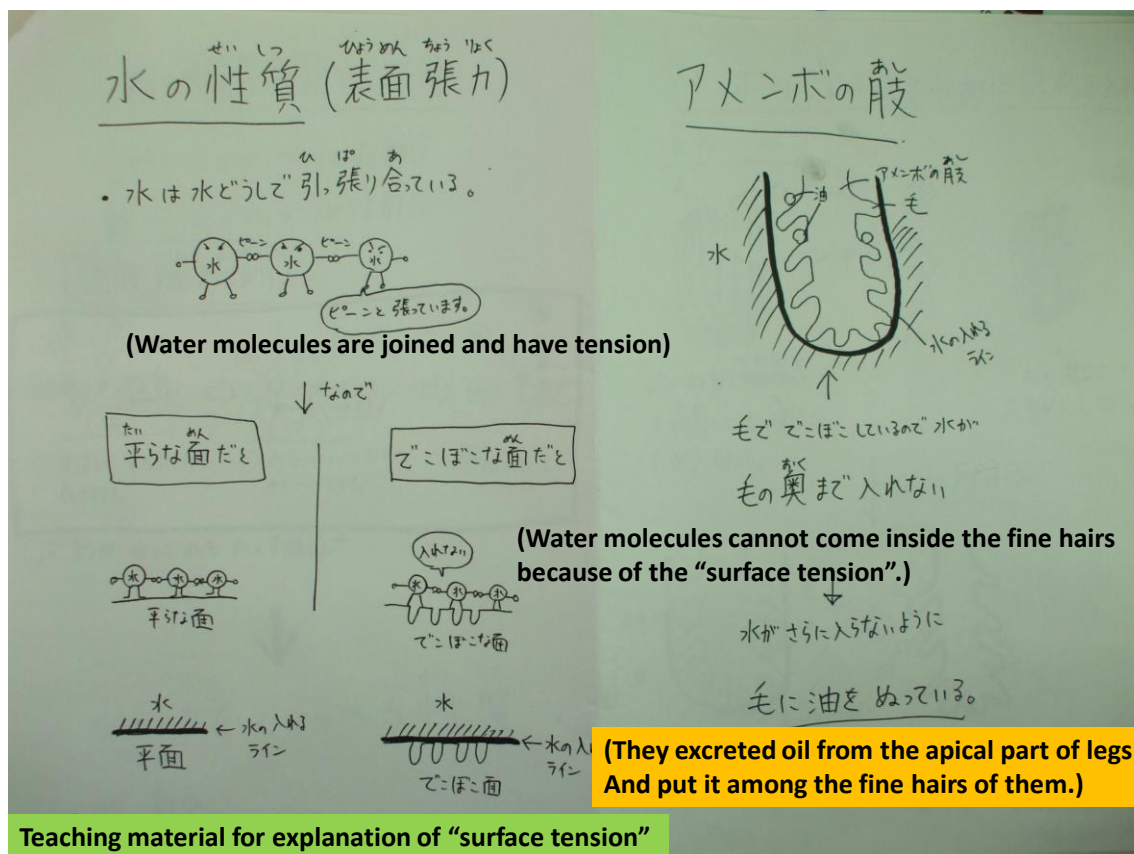 せい しつ ひょうめん ちょう りょく
水の性質(表面張力)
ひ ぱ あ
・水は水どうしで引っ張り合っている。
ピーン ピーン
水 水 水
ピーンと張っています。
(Water molecules are joined and have tension)
なので
たい めん
平らな面だと
めん
でこぼこな面だと
入れない
水 水 水
平らな面
水 水 水
でこぼこな面
水
水の入れる
ライン
平面
水
水の入れ
ライン
でこぼこ面
あし
アメンボの肢
あし
アメンボの肢
油
毛
水
水の入れる
ライン
毛で でこぼこしているので水が
おく
毛の奥まで入れない
(Water molecules cannot come inside the fine hairs
because of the “surface tension”.)
水がさらに入らないように
毛に油をぬっている。
(They excreted oil from the apical part of legs
And put it among the fine hairs of them.)
Teaching material for explanation of “surface tension”